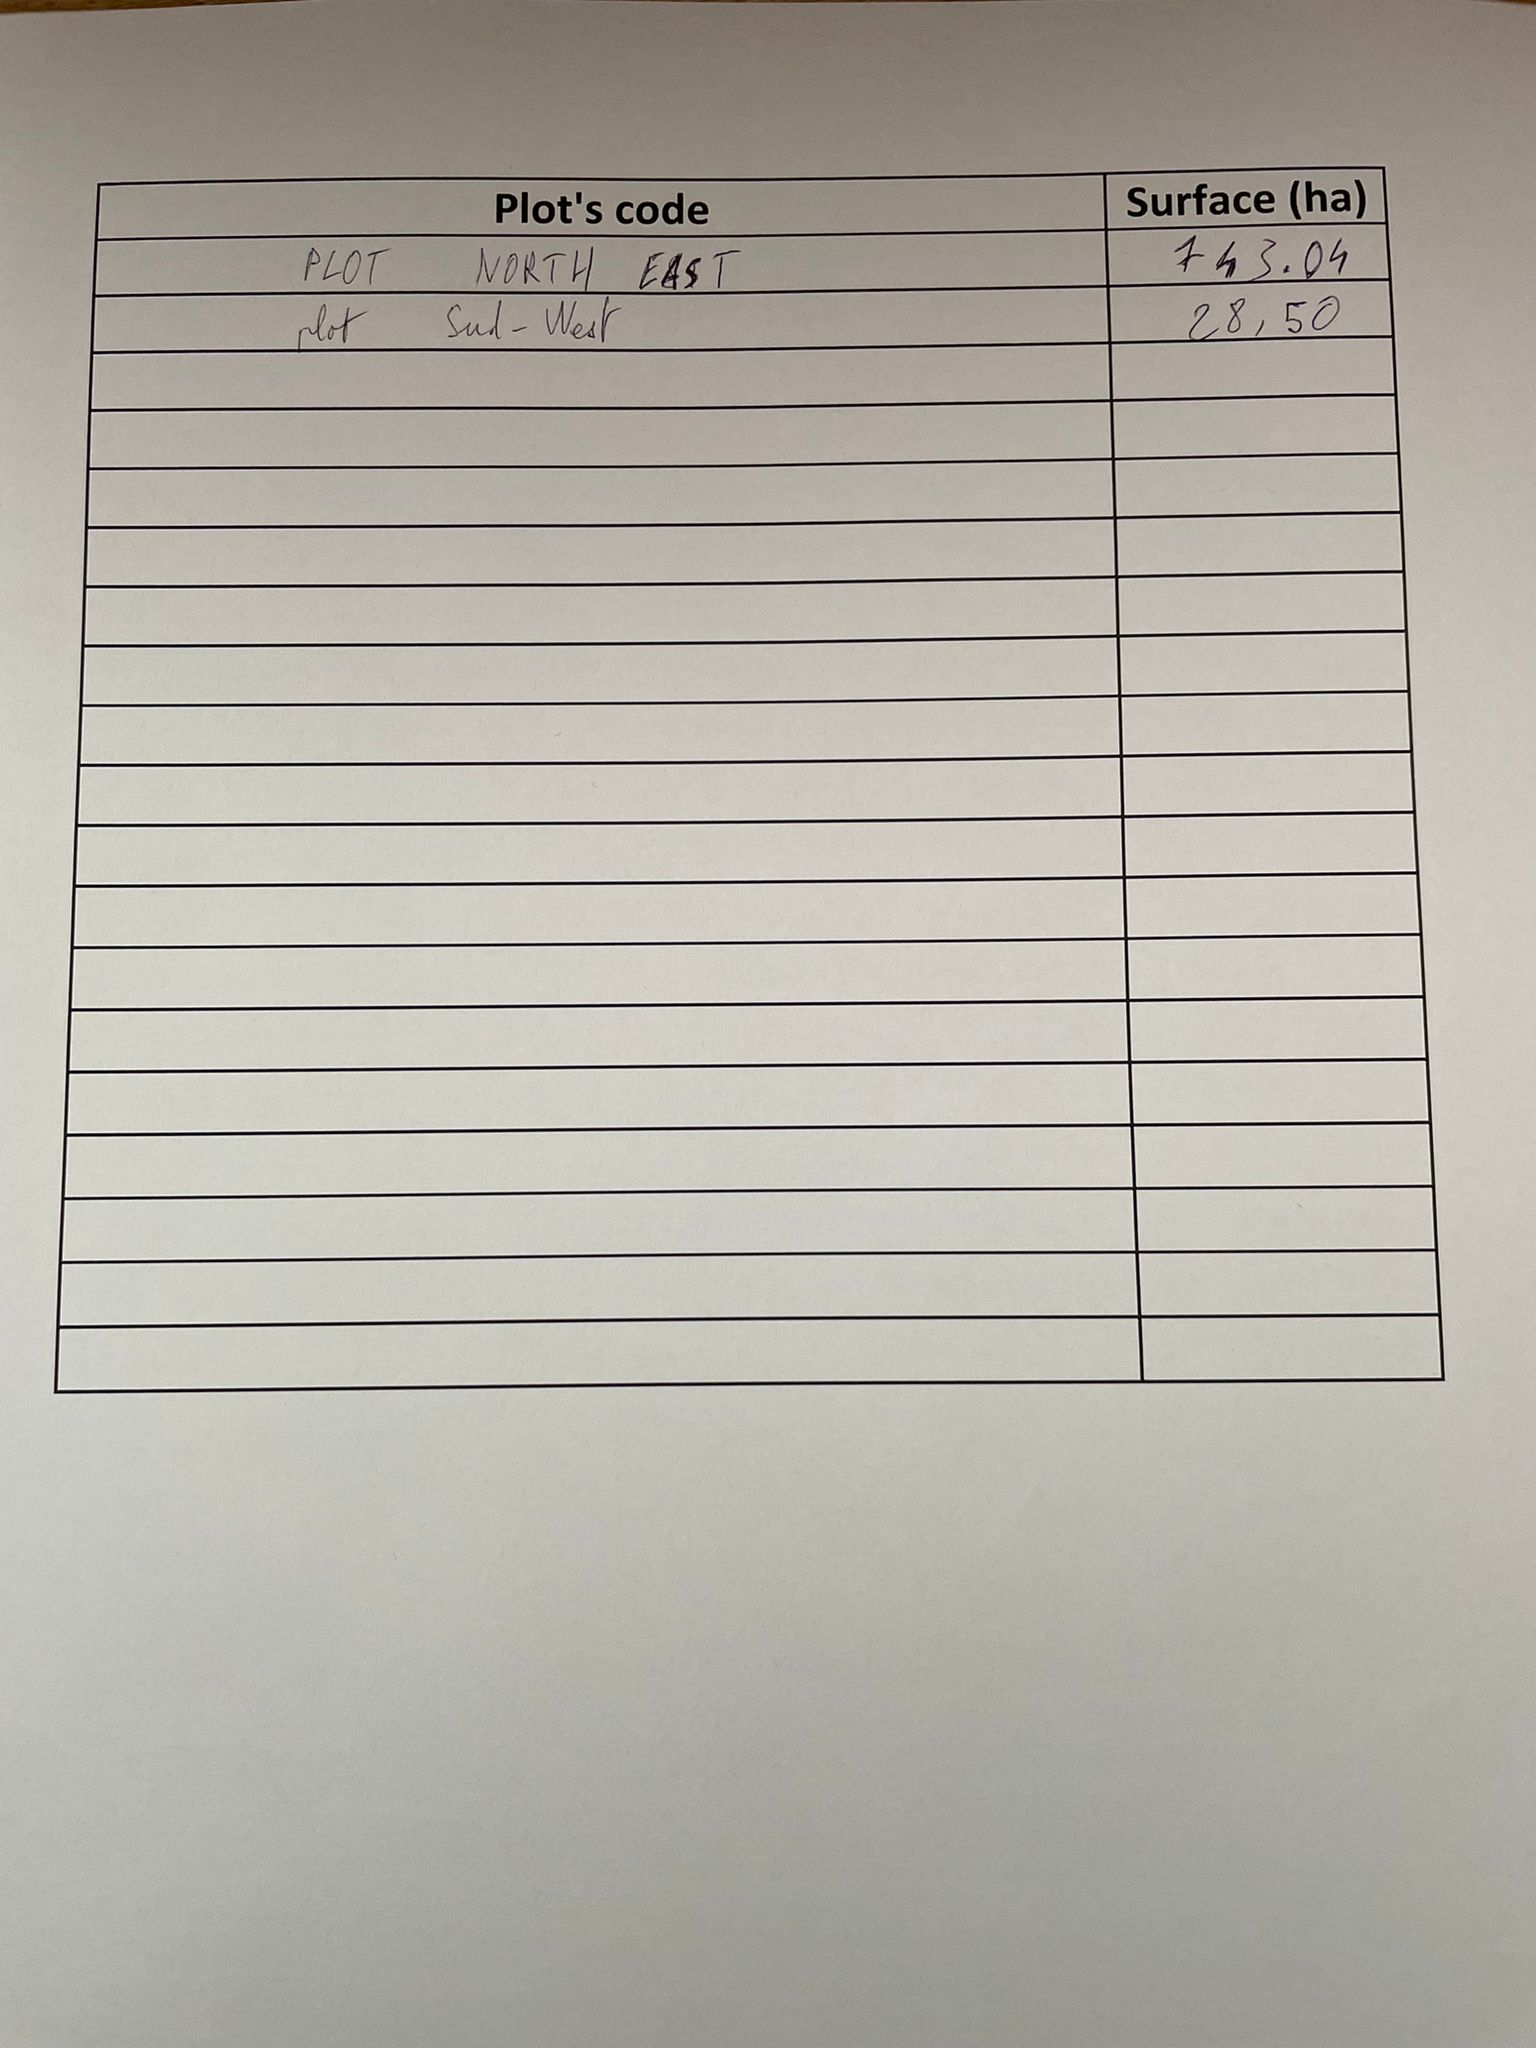 Plot's code Surface (ha)
PLOT NORTH EAST 743.04
plot Sud-West 28,50